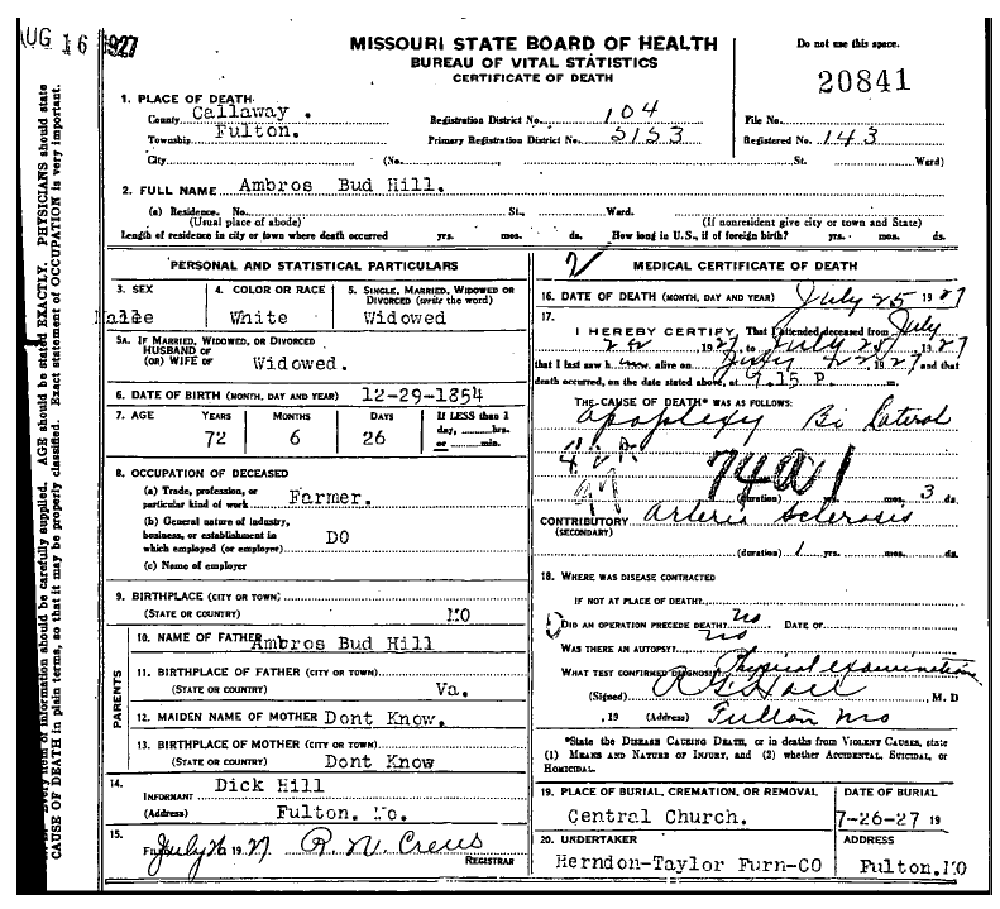 AUG 16 1927
MISSOURI STATE BOARD OF HEALTH
BUREAU OF VITAL STATISTICS
CERTIFICATE OF DEATH
Do not use this space.
20841
1. PLACE OF DEATH
County Callaway. Registration District No. 104 File No.
Township Fulton. Primary Registration District No. 5153 Registered No. 143
City (No. St. Ward)
2. FULL NAME Ambros Bud Hill.
(a) Residence. No. St., Ward.
(Usual place of abode) (If nonresident give city or town and State)
Length of residence in city or town where death occurred yrs. mos. ds. How long in U.S., if of foreign birth? yrs. mos. ds.
PERSONAL AND STATISTICAL PARTICULARS
3. SEX 4. COLOR OR RACE 5. SINGLE, MARRIED, WIDOWED OR
DIVORCED (write the word)
White Widowed
5A. IF MARRIED, WIDOWED, OR DIVORCED
HUSBAND OF
(OR) WIFE OF Widowed.
6. DATE OF BIRTH (MONTH, DAY AND YEAR) 12-29-1854
7. AGE YEARS MONTHS DAYS If LESS than 1
day, hrs.
or min.
72 6 26
8. OCCUPATION OF DECEASED
(a) Trade, profession, or
particular kind of work Farmer.
(b) General nature of industry,
business, or establishment in
which employed (or employer) DO
(c) Name of employer
9. BIRTHPLACE (CITY OR TOWN)
(STATE OR COUNTRY) MO
PARENTS
10. NAME OF FATHER Ambros Bud Hill
11. BIRTHPLACE OF FATHER (CITY OR TOWN)
(STATE OR COUNTRY) Va.
12. MAIDEN NAME OF MOTHER Dont Know.
13. BIRTHPLACE OF MOTHER (CITY OR TOWN)
(STATE OR COUNTRY) Dont Know
14. INFORMANT Dick Hill
(Address) Fulton. Mo.
15. July 26 1927 R. M. Crews
REGISTRAR
2
MEDICAL CERTIFICATE OF DEATH
16. DATE OF DEATH (MONTH, DAY AND YEAR) July 25 1927
17.
I HEREBY CERTIFY, That I attended deceased from July
22 1927, to July 25, 1927
that I last saw h alive on July 22, 1927 and that
death occurred, on the date stated above, at 9.15 P. m.
THE CAUSE OF DEATH* WAS AS FOLLOWS:
Apoplexy Bi Lateral
74a1
(duration) mos. 3 ds.
CONTRIBUTORY Arterio Sclerosis
(SECONDARY)
(duration) 1 yrs. mos. ds.
18. WHERE WAS DISEASE CONTRACTED
IF NOT AT PLACE OF DEATH?
DID AN OPERATION PRECEDE DEATH? no DATE OF
WAS THERE AN AUTOPSY? no
WHAT TEST CONFIRMED DIAGNOSIS? Physical examination
(Signed) M. D
, 19 (Address) Fulton Mo
*State the DISEASE CAUSING DEATH, or in deaths from VIOLENT CAUSES, state
(1) MEANS AND NATURE OF INJURY, and (2) whether ACCIDENTAL, SUICIDAL, or
HOMICIDAL.
19. PLACE OF BURIAL, CREMATION, OR REMOVAL DATE OF BURIAL
Central Church. 7-26-27 19
20. UNDERTAKER ADDRESS
Herndon-Taylor Furn-CO Fulton.MO
Every item of information should be carefully supplied. AGE should be stated EXACTLY. PHYSICIANS should state
CAUSE OF DEATH in plain terms, so that it may be properly classified. Exact statement of OCCUPATION is very important.